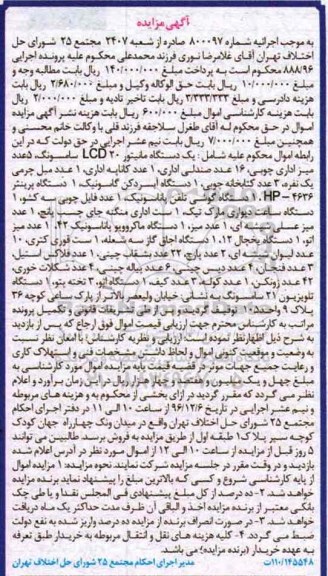 آگهی مزایده
به موجب اجرائیه شماره ۸۰۰۰۹۷ صادره از شعبه ۲۴۰۷ مجتمع ۲۵ شورای حل
اختلاف تهران آقای غلامرضا نوری فرزند محمدعلی محکوم علیه پرونده اجرایی
۸۸۸/۹۶ محکوم است به پرداخت مبلغ ۱۴۰/۰۰۰/۰۰۰ ریال بابت مطالبه وجه و
مبلغ ۱۰/۰۰۰/۰۰۰ ریال بابت حق الوکاله وکیل و مبلغ ۲/۶۸۰/۰۰۰ ریال بابت
هزینه دادرسی و مبلغ ۲/۳۳۳/۳۳۳ ریال بابت تاخیر تادیه و مبلغ ۲/۰۰۰/۰۰۰ ریال
بابت هزینه کارشناسی اموال مبلغ ۶۰۰/۰۰۰ ریال بابت هزینه نشر آگهی مزایده
اموال در حق محکوم له آقای طغرل سلاجقه فرزند قلی با وکالت خانم محسنی و
همچنین مبلغ ۷/۰۰۰/۰۰۰ ریال بابت نیم عشر اجرایی در حق دولت که در این
رابطه اموال محکوم علیه شامل: یک دستگاه مانیتور LCD ۲۰ سامسونگ، ۵عدد
میز اداری چوبی، ۱۶ عدد صندلی اداری، ۱ عدد کتابه اداری، ۱ عدد مبل چرمی
یک نفره، ۳ عدد کتابخانه چوبی، ۱ دستگاه آبسردکن گاسونیک، ۱ دستگاه پرینتر
HP - ۴۶۳۶، ۱ دستگاه تلفن پاناسونیک، ۱ عدد فایل چوبی سه کشو، ۱
دستگاه ساعت دیواری مارک تیک، ۱ ست اداری منگنه جای چسب پانچ، ۱ عدد
میز عسلی شیشه ای، ۱ عدد میز، ۱ دستگاه ماکروویو پاناسونیک ۴۲، ۱ عدد میز
اتو، ۱ دستگاه یخچال ۱۲، ۱ دستگاه اجاق گاز سه شعله، ۱ ست قوری کتری، ۱۰
عدد لیوان شیشه ای، ۳ عدد پارچ، ۲۲ عدد بشقاب چینی، ۲ عدد فلاکس استیل،
۳ عدد فنجان، ۲ عدد دیس چینی، ۶ عدد پیاله چینی، ۴ عدد شکلات خوری،
۴۳ عدد زونکن، ۱ عدد کولر، ۲ عدد کیف، ۱ دستگاه اتو، ۳ تخته پتو، ۱ دستگاه
تلویزیون ۲۱ سامسونگ به نشانی خیابان ولیعصر بالاتر از پارک ساعی کوچه ۳۶
پلاک ۹ واحد ۱۰ توقیف گردید و پس از طی تشریفات قانونی و تکمیل پرونده
مراتب به کارشناس محترم جهت ارزیابی قیمت اموال فوق ارجاع که پس از بازدید
به شرح ذیل اظهارنظر نموده است: ارزیابی و نظریه کارشناس: با امعان نظر نسبت
به وضعیت و موقعیت کنونی اموال و لحاظ داشتن مشخصات فنی و استهلاک کاری
و رعایت جمیع جهات موثر در قضیه قیمت پایه مزایده اموال مورد کارشناسی به
مبلغ چهل و یک میلیون و هشتصد و چهار هزار ریال در این زمان برآورد و اعلام
نظر می گردد که مقرر گردید در ازای بخشی از محکوم به و هزینه های مربوطه
و نیم عشر اجرایی در تاریخ ۹۶/۱۲/۶ از ساعت ۱۰ الی ۱۱ در دفتر اجرای احکام
مجتمع ۲۵ شورای حل اختلاف تهران واقع در میدان ونک چهارراه جهان کودک
کوچه سپر پلاک ۱ طبقه اول از طریق مزایده به فروش برسد. طالبین می توانند
۵ روز قبل از مزایده از ساعت ۱۰ الی ۱۲ از اموال مورد نظر در آدرس اعلام شده
بازدید و در وقت مقرر در جلسه مزایده شرکت نمایند. نحوه مزایده: ۱ مزایده اموال
از پایه کارشناسی شروع و کسی که بالاترین مبلغ را پیشنهاد نماید برنده مزایده
خواهد شد. ۲- ده درصد از کل مبلغ پیشنهادی فی المجلس نقدا و یا طی چک
بانکی معتبر از برنده مزایده اخذ و الباقی آن ظرف مدت حداکثر یک ماه دریافت
خواهد شد. ۳- در صورت انصراف برنده از مزایده ده درصد واریز شده به نفع دولت
ضبط می گردد. ۴- کلیه هزینه های نقل و انتقال مربوطه به خریدار طبق تعرفه
به عهده خریدار (برنده مزایده) می باشد.
۱۱۰/۱۴۵۵۴۸ت مدیر اجرای احکام مجتمع ۲۵ شورای حل اختلاف تهران